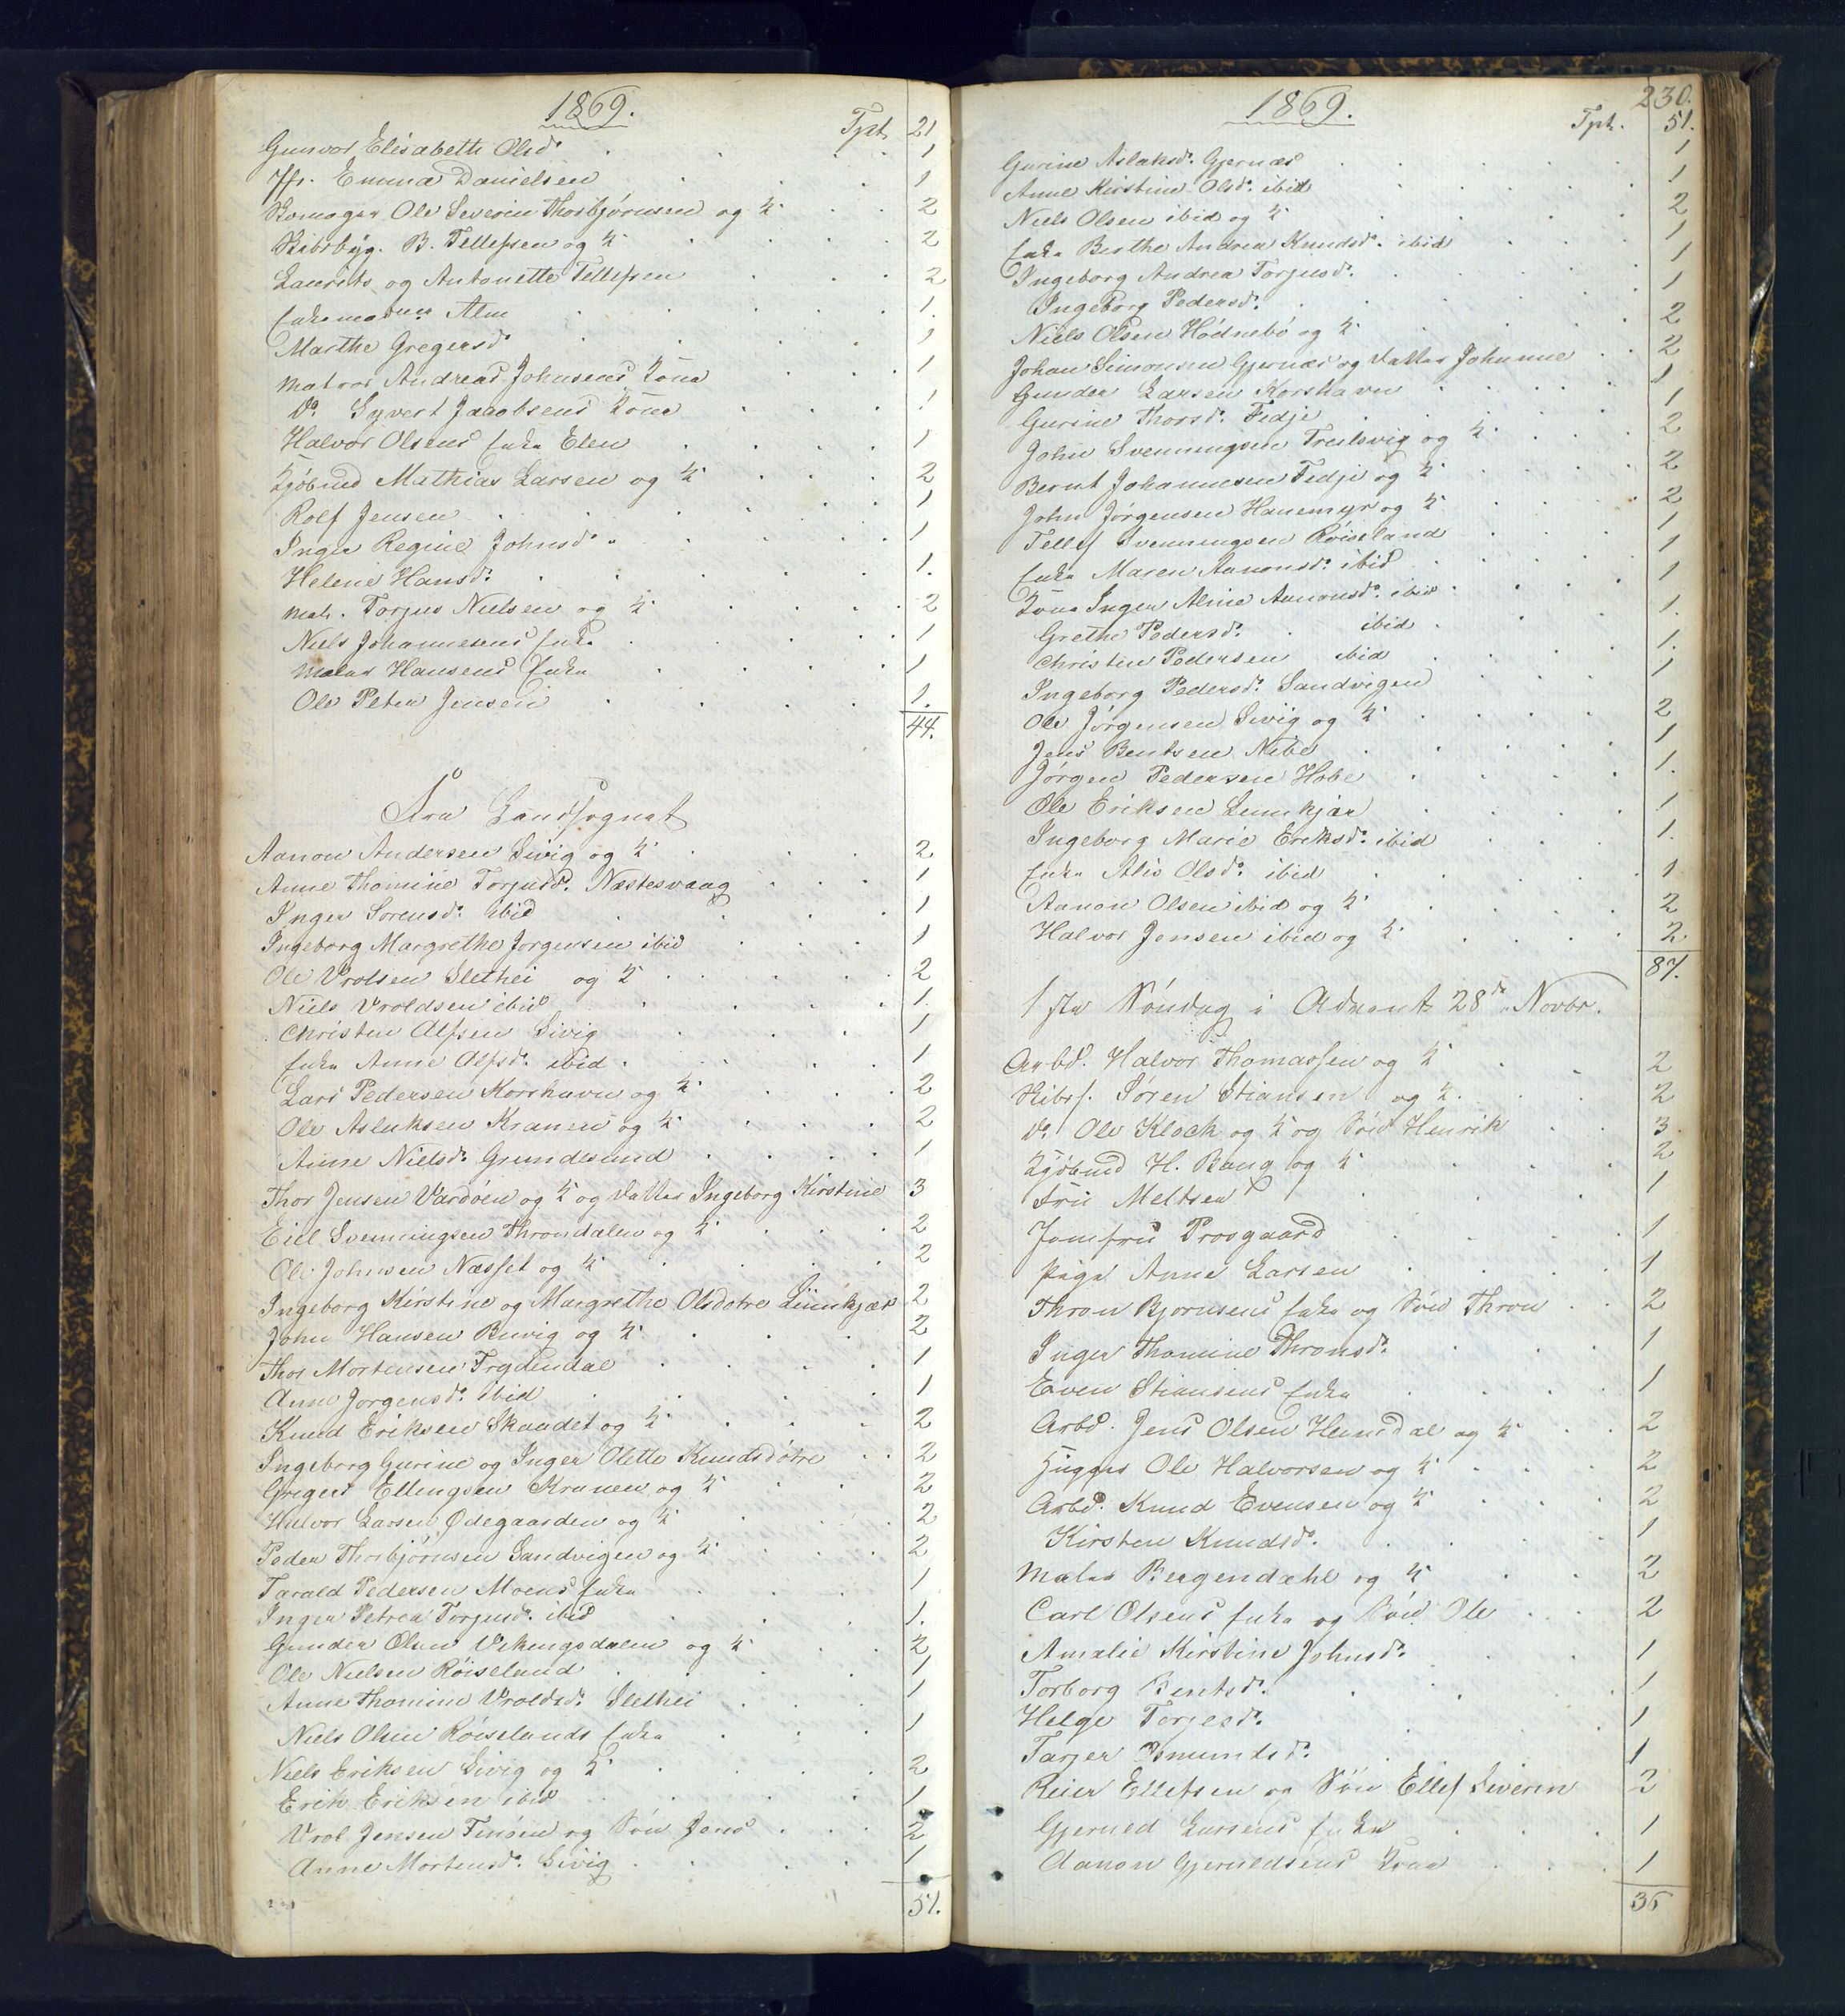 1869.
Tpt. 21
Gunvor Elisabeth Olsd. 1
Jfr. Emma Danielsen 1
Skomager Ole Severin Thorbjørnsen og K. 2
Skibsbyg. B. Tellefsen og K. 2
Laurits og Antonette Tellefsen 2
Enkemadme Alm 1.
Marthe Gregersd. 1
Matros Andreas Johnsens Kone 1
Do. Syvert Jacobsens Kone 1
Halvor Olsens Enke Elen 1
Kjøbmd Mathias Larsen og K. 2
Rolf Jensen 1
Inger Regine Johnsd. 1
Helene Hansd. 1.
Mat. Torjus Nielsen og K. 2
Niels Johannesens Enke 1
Malar Hansens Enke 1
Ole Peter Jensen 1.
44.
Fra Landsognet
Aanon Andersen Sivig og K. 2
Anne Thomine Torjusd. Næstesvaag 1
Inger Sørensd. ibid 1
Ingeborg Margrethe Jørgensen ibid 1
Ole Vrolsen Slethei og K. 2
Niels Vroldsen ibid 1.
Christen Alfsen Sivig 1
Enke Anne Alfsd. ibid 1
Lars Pedersen Korshavn og K. 2
Ole Aslaksen Kranen og K. 2
Anne Nielsd. Grundesund 1
Thor Jensen Vardøen og K. og Datter Ingeborg Kirstine 3
Eiel Svenningsen Throndalen og K. 2
Ole Johnsen Næsset og K. 2
Ingeborg Kirstine og Margrethe Olsdøtre Lunnkjær 2
John Hansen Buvig og K. 2
Thor Mortensen Frydendal 1
Anne Jørgensd. ibid 1
Knud Eriksen Skaadet og K. 2
Ingeborg Gurine og Inger Olette Knudsdøtre 2
Gregers Ellingsen Kranen og K. 2
Halvor Larsen Ødegaarden og K. 2
Peder Thorbjørnsen Sandvigen og K. 2
Tarald Pedersen Moens Enke 1
Inger Petrea Torjusd. ibid 1.
Gunder Olsen Vikingsdalen og K. 2
Ole Nielsen Røiseland 1
Anne Thomine Vroldsd. Slethei 1
Niels Olsen Røiselands Enke 1
Niels Eriksen Sivig og K. 2
Erik Eriksen ibid 1
Vrol Jensen Finøen og Søn Jens 2
Anne Mortensd. Sivig 1
51.
230.
1869.
Tpt. 51.
Gurine Aslaksd. Gjernæs 1
Anne Kirstine Olsd. ibid 1
Niels Olsen ibid og K. 2
Enke Berthe Andrea Knudsd. ibid 1
Ingeborg Andrea Torjusd. 1
Ingeborg Pedersd. 1
Niels Olsen Hødnebø og K. 2
Johan Simonsen Gjernæs og Datter Johanne 2
Gunder Larsen Korshavn 1
Gurine Thorsd. Fidje 1
John Svenningsen Treilevig og K. 2
Bernt Johannesen Fidje og K. 2
John Jørgensen Hanemyr og K. 2
Tellef Svenningsen Røiseland 1
Enke Maren Aanonsd. ibid 1
Kone Inger Aline Aanonsd. ibid 1
Grethe Pedersd. ibid 1.
Christen Pedersen ibid 1.
Ingeborg Pedersd. Sandvigen 1
Ole Jørgensen Sivig og K. 2
Jens Bentsen Nibe 1
Jørgen Pedersen Hobe 1.
Ole Eriksen Lunnkjær 1
Ingeborg Marie Eriksd. ibid 1.
Enke Alis Olsd. ibid 1
Aanon Olsen ibid og K. 2
Halvor Jensen ibid og K. 2
87.
1ste Søndag i Advent 28de Novbr.
Arbd. Halvor Thomassen og K. 2
Skibsf. Søren Stiansen og K. 2
Do. Ole Klock og K. og Søn Henrik 3
Kjøbmd H. Bang og K. 2
Fru Meltsen 1
Jomfru Prosgaard 1
Pige Anne Larsen 1
Thron Bjørnsens Enke og Søn Thron 2
Inger Thomine Thronsd. 1
Even Stiansens Enke 1
Arbd. Jens Olsen Heimdal og K. 2
Hugger Ole Halvorsen og K. 2
Arbd. Knud Evensen og K. 2
Kirsten Knudsd. 1
Malar Bergendahl og K. 2
Carl Olsens Enke og Søn Ole 2
Amalie Kirstine Johnsd. 1
Torborg Bentsd. 1
Helge Torjesd. 1
Tarjer Osmundsd. 1
Reier Ellefsen og Søn Ellef Severin 2
Gjerued Larsens Enke 1
Aanon Gjeruldsens Kone 1
36